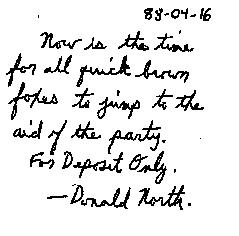 88-04-16
Now is the time
for all quick brown
foxes to jump to the
aid of the party.
For Deposit Only.
—Donald North.